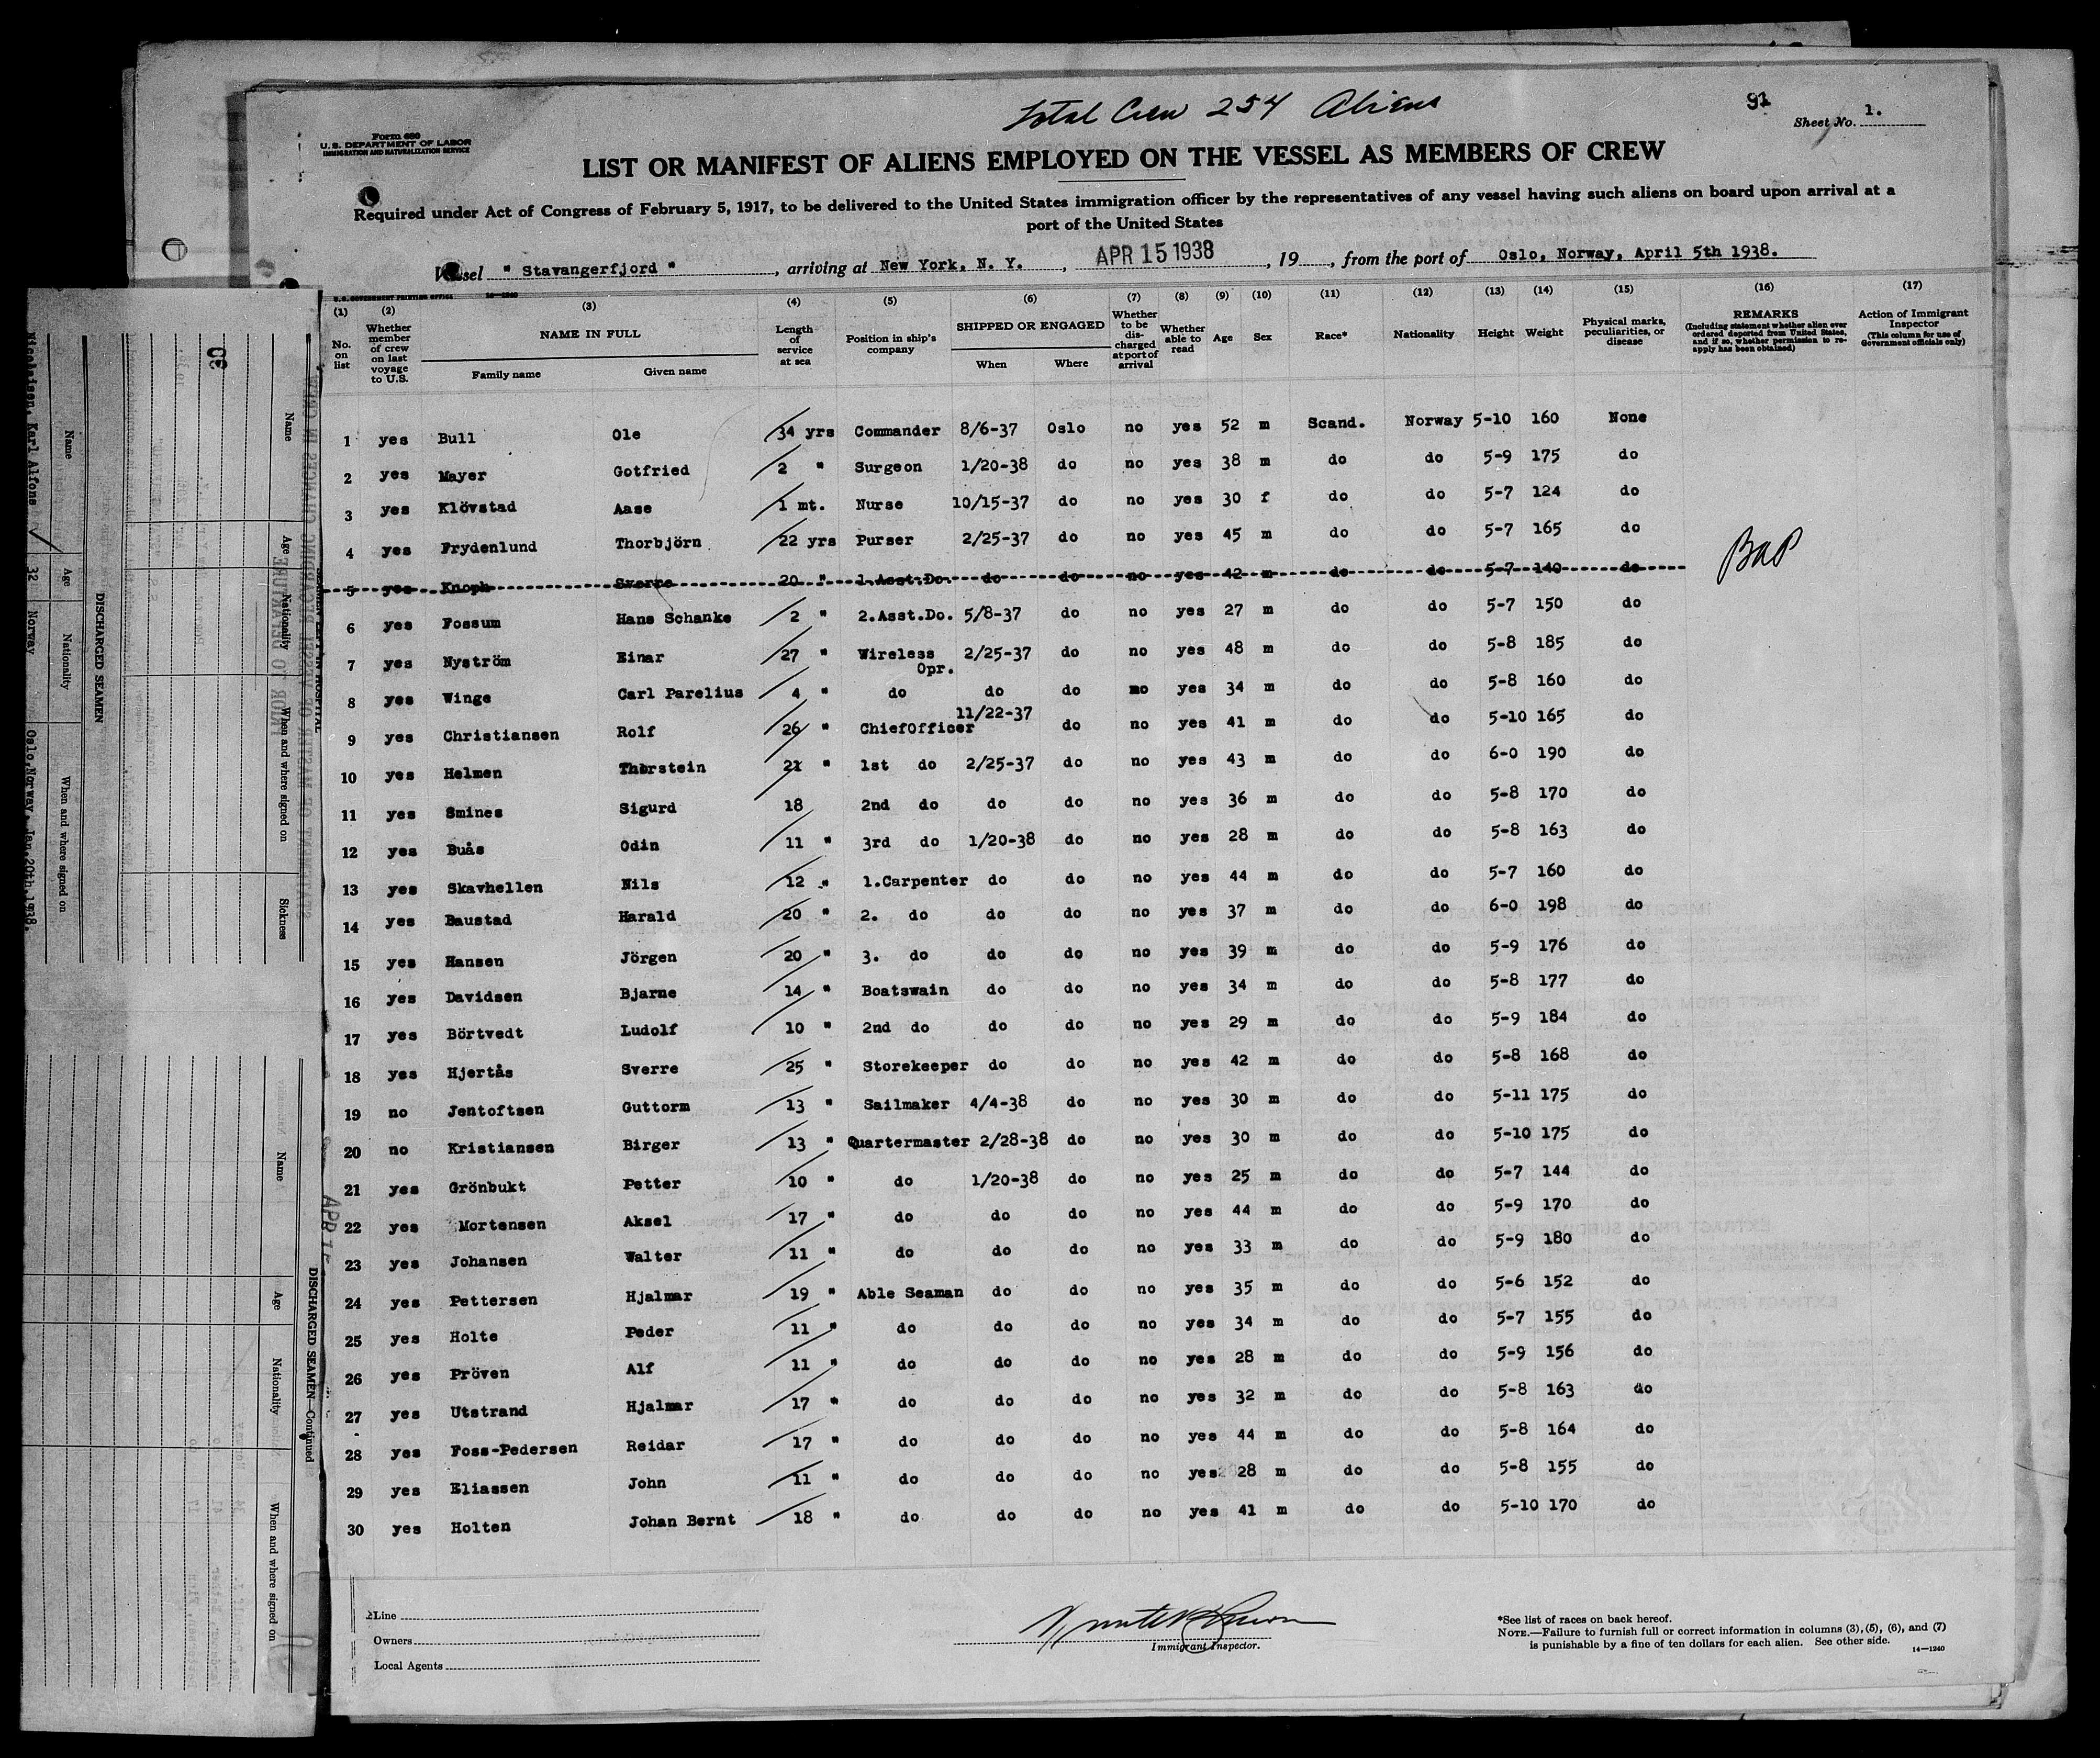 Total Crew 254 Aliens
91
Sheet No. 1.
Form 680
U. S. DEPARTMENT OF LABOR
IMMIGRATION AND NATURALIZATION SERVICE
LIST OR MANIFEST OF ALIENS EMPLOYED ON THE VESSEL AS MEMBERS OF CREW
Required under Act of Congress of February 5, 1917, to be delivered to the United States immigration officer by the representatives of any vessel having such aliens on board upon arrival at a
port of the United States
Vessel " Stavangerfjord ", arriving at New York, N. Y., APR 15 1938, 19, from the port of Oslo, Norway, April 5th 1938.
U. S. GOVERNMENT PRINTING OFFICE 14—1240
(1) No. on list
(2) Whether member of crew on last voyage to U.S.
(3) NAME IN FULL
Family name Given name
(4) Length of service at sea
(5) Position in ship's company
(6) SHIPPED OR ENGAGED
When Where
(7) Whether to be discharged at port of arrival
(8) Whether able to read
(9) Age
(10) Sex
(11) Race*
(12) Nationality
(13) Height
(14) Weight
(15) Physical marks, peculiarities, or disease
(16) REMARKS
(Including statement whether alien ever ordered deported from United States, and if so, whether permission to reapply has been obtained)
(17) Action of Immigrant Inspector
(This column for use of Government officials only)
1 yes Bull Ole 34 yrs Commander 8/6-37 Oslo no yes 52 m Scand. Norway 5-10 160 None
2 yes Mayer Gotfried 2 " Surgeon 1/20-38 do no yes 38 m do do 5-9 175 do
3 yes Klövstad Aase 1 mt. Nurse 10/15-37 do no yes 30 f do do 5-7 124 do
4 yes Frydenlund Thorbjörn 22 yrs Purser 2/25-37 do no yes 45 m do do 5-7 165 do
5 yes Knoph Sverre 20 " 1.Asst.Do. do do no yes 42 m do do 5-7 140 do
6 yes Fossum Hans Schanke 2 " 2.Asst.Do. 5/8-37 do no yes 27 m do do 5-7 150 do
7 yes Nyström Einar 27 " Wireless Opr. 2/25-37 do no yes 48 m do do 5-8 185 do
8 yes Winge Carl Parelius 4 " do do do no yes 34 m do do 5-8 160 do
9 yes Christiansen Rolf 26 " ChiefOfficer 11/22-37 do no yes 41 m do do 5-10 165 do
10 yes Helmen Thorstein 21 " 1st do 2/25-37 do no yes 43 m do do 6-0 190 do
11 yes Smines Sigurd 18 2nd do do do no yes 36 m do do 5-8 170 do
12 yes Buås Odin 11 " 3rd do 1/20-38 do no yes 28 m do do 5-8 163 do
13 yes Skavhellen Nils 12 " 1.Carpenter do do no yes 44 m do do 5-7 160 do
14 yes Baustad Harald 20 " 2. do do do no yes 37 m do do 6-0 198 do
15 yes Hansen Jörgen 20 " 3. do do do no yes 39 m do do 5-9 176 do
16 yes Davidsen Bjarne 14 " Boatswain do do no yes 34 m do do 5-8 177 do
17 yes Börtvedt Ludolf 10 " 2nd do do do no yes 29 m do do 5-9 184 do
18 yes Hjertås Sverre 25 " Storekeeper do do no yes 42 m do do 5-8 168 do
19 no Jentoftsen Guttorm 13 " Sailmaker 4/4-38 do no yes 30 m do do 5-11 175 do
20 no Kristiansen Birger 13 " Quartermaster 2/28-38 do no yes 30 m do do 5-10 175 do
21 yes Grönbukt Petter 10 " do 1/20-38 do no yes 25 m do do 5-7 144 do
22 yes Mortensen Aksel 17 " do do do no yes 44 m do do 5-9 170 do
23 yes Johansen Walter 11 " do do do no yes 33 m do do 5-9 180 do
24 yes Pettersen Hjalmar 19 " Able Seaman do do no yes 35 m do do 5-6 152 do
25 yes Holte Peder 11 " do do do no yes 34 m do do 5-7 155 do
26 yes Pröven Alf 11 " do do do no yes 28 m do do 5-9 156 do
27 yes Utstrand Hjalmar 17 " do do do no yes 32 m do do 5-8 163 do
28 yes Foss-Pedersen Reidar 17 " do do do no yes 44 m do do 5-8 164 do
29 yes Eliassen John 11 " do do do no yes 28 m do do 5-8 155 do
30 yes Holten Johan Bernt 18 " do do do no yes 41 m do do 5-10 170 do
Line
Owners
Local Agents
Immigrant Inspector.
*See list of races on back hereof.
NOTE.—Failure to furnish full or correct information in columns (3), (5), (6), and (7)
is punishable by a fine of ten dollars for each alien. See other side.
14—1240
30
Name Age Nationality When and where signed on Sickness
DISCHARGED SEAMEN
Name Age Nationality When and where signed on
Karl Alfons 32 Norway Oslo, Norway, Jan. 20th, 1938.
DISCHARGED SEAMEN—Continued
Name Age Nationality When and where signed on